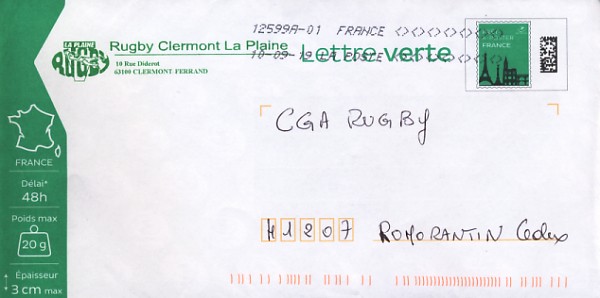 12599A-01 FRANCE
10-09-19 LA POSTE
LA PLAINE
RUGBY
Rugby Clermont La Plaine
10 Rue Diderot
63100 CLERMONT FERRAND
Lettre verte
FRANCE
CGA RUGBY
41207 ROMORANTIN Cedex
FRANCE
Délai*
48h
Poids max
20 g
Épaisseur
3 cm max